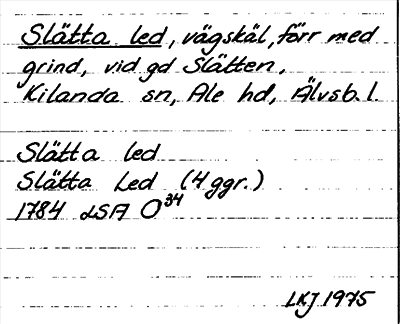 Slätta led, vägskäl, förr med
grind, vid gd Slätten,
Kilanda sn, Ale hd, Älvsb. l.
Slätta led
Slätta Led (4 ggr.)
1784 LSA O34
LKJ 1975